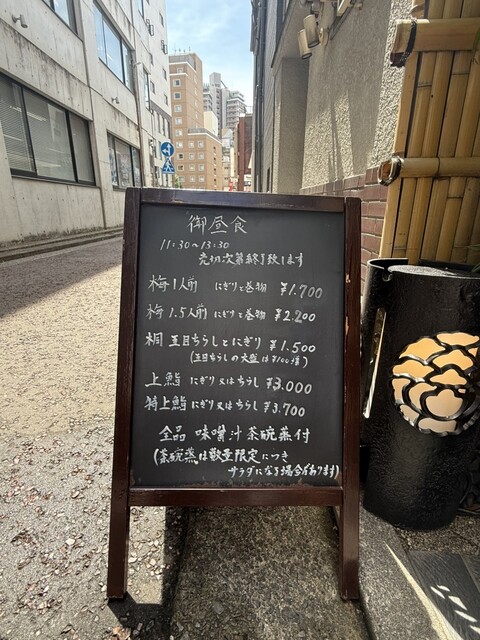 御昼食
11:30~13:30
売切次第終了致します
梅1人前 にぎりと巻物 ¥1.700
梅1.5人前 にぎりと巻物 ¥2.200
桐 五目ちらしとにぎり ¥1.500
(五目ちらしの大盛は¥100増)
上鮨 にぎり又はちらし ¥3.000
特上鮨 にぎり又はちらし ¥3.700
全品 味噌汁 茶碗蒸付
(茶碗蒸は数量限定につき
サラダになる場合有ります)